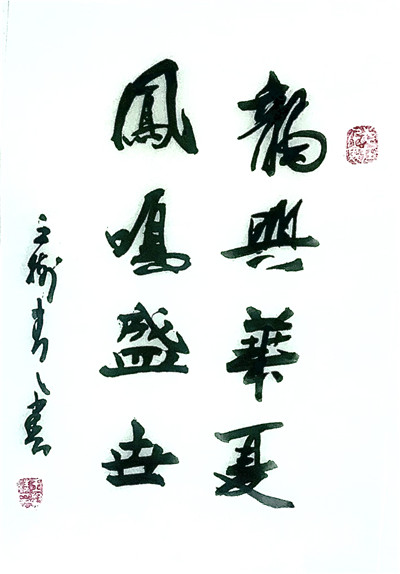 龍興華夏
鳳鳴盛世